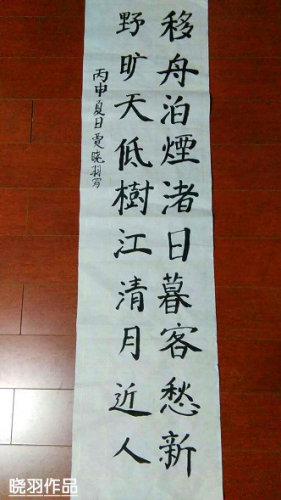 移舟泊煙渚日暮客愁新
野旷天低樹江清月近人
丙申夏日雯晓羽写
晓羽作品